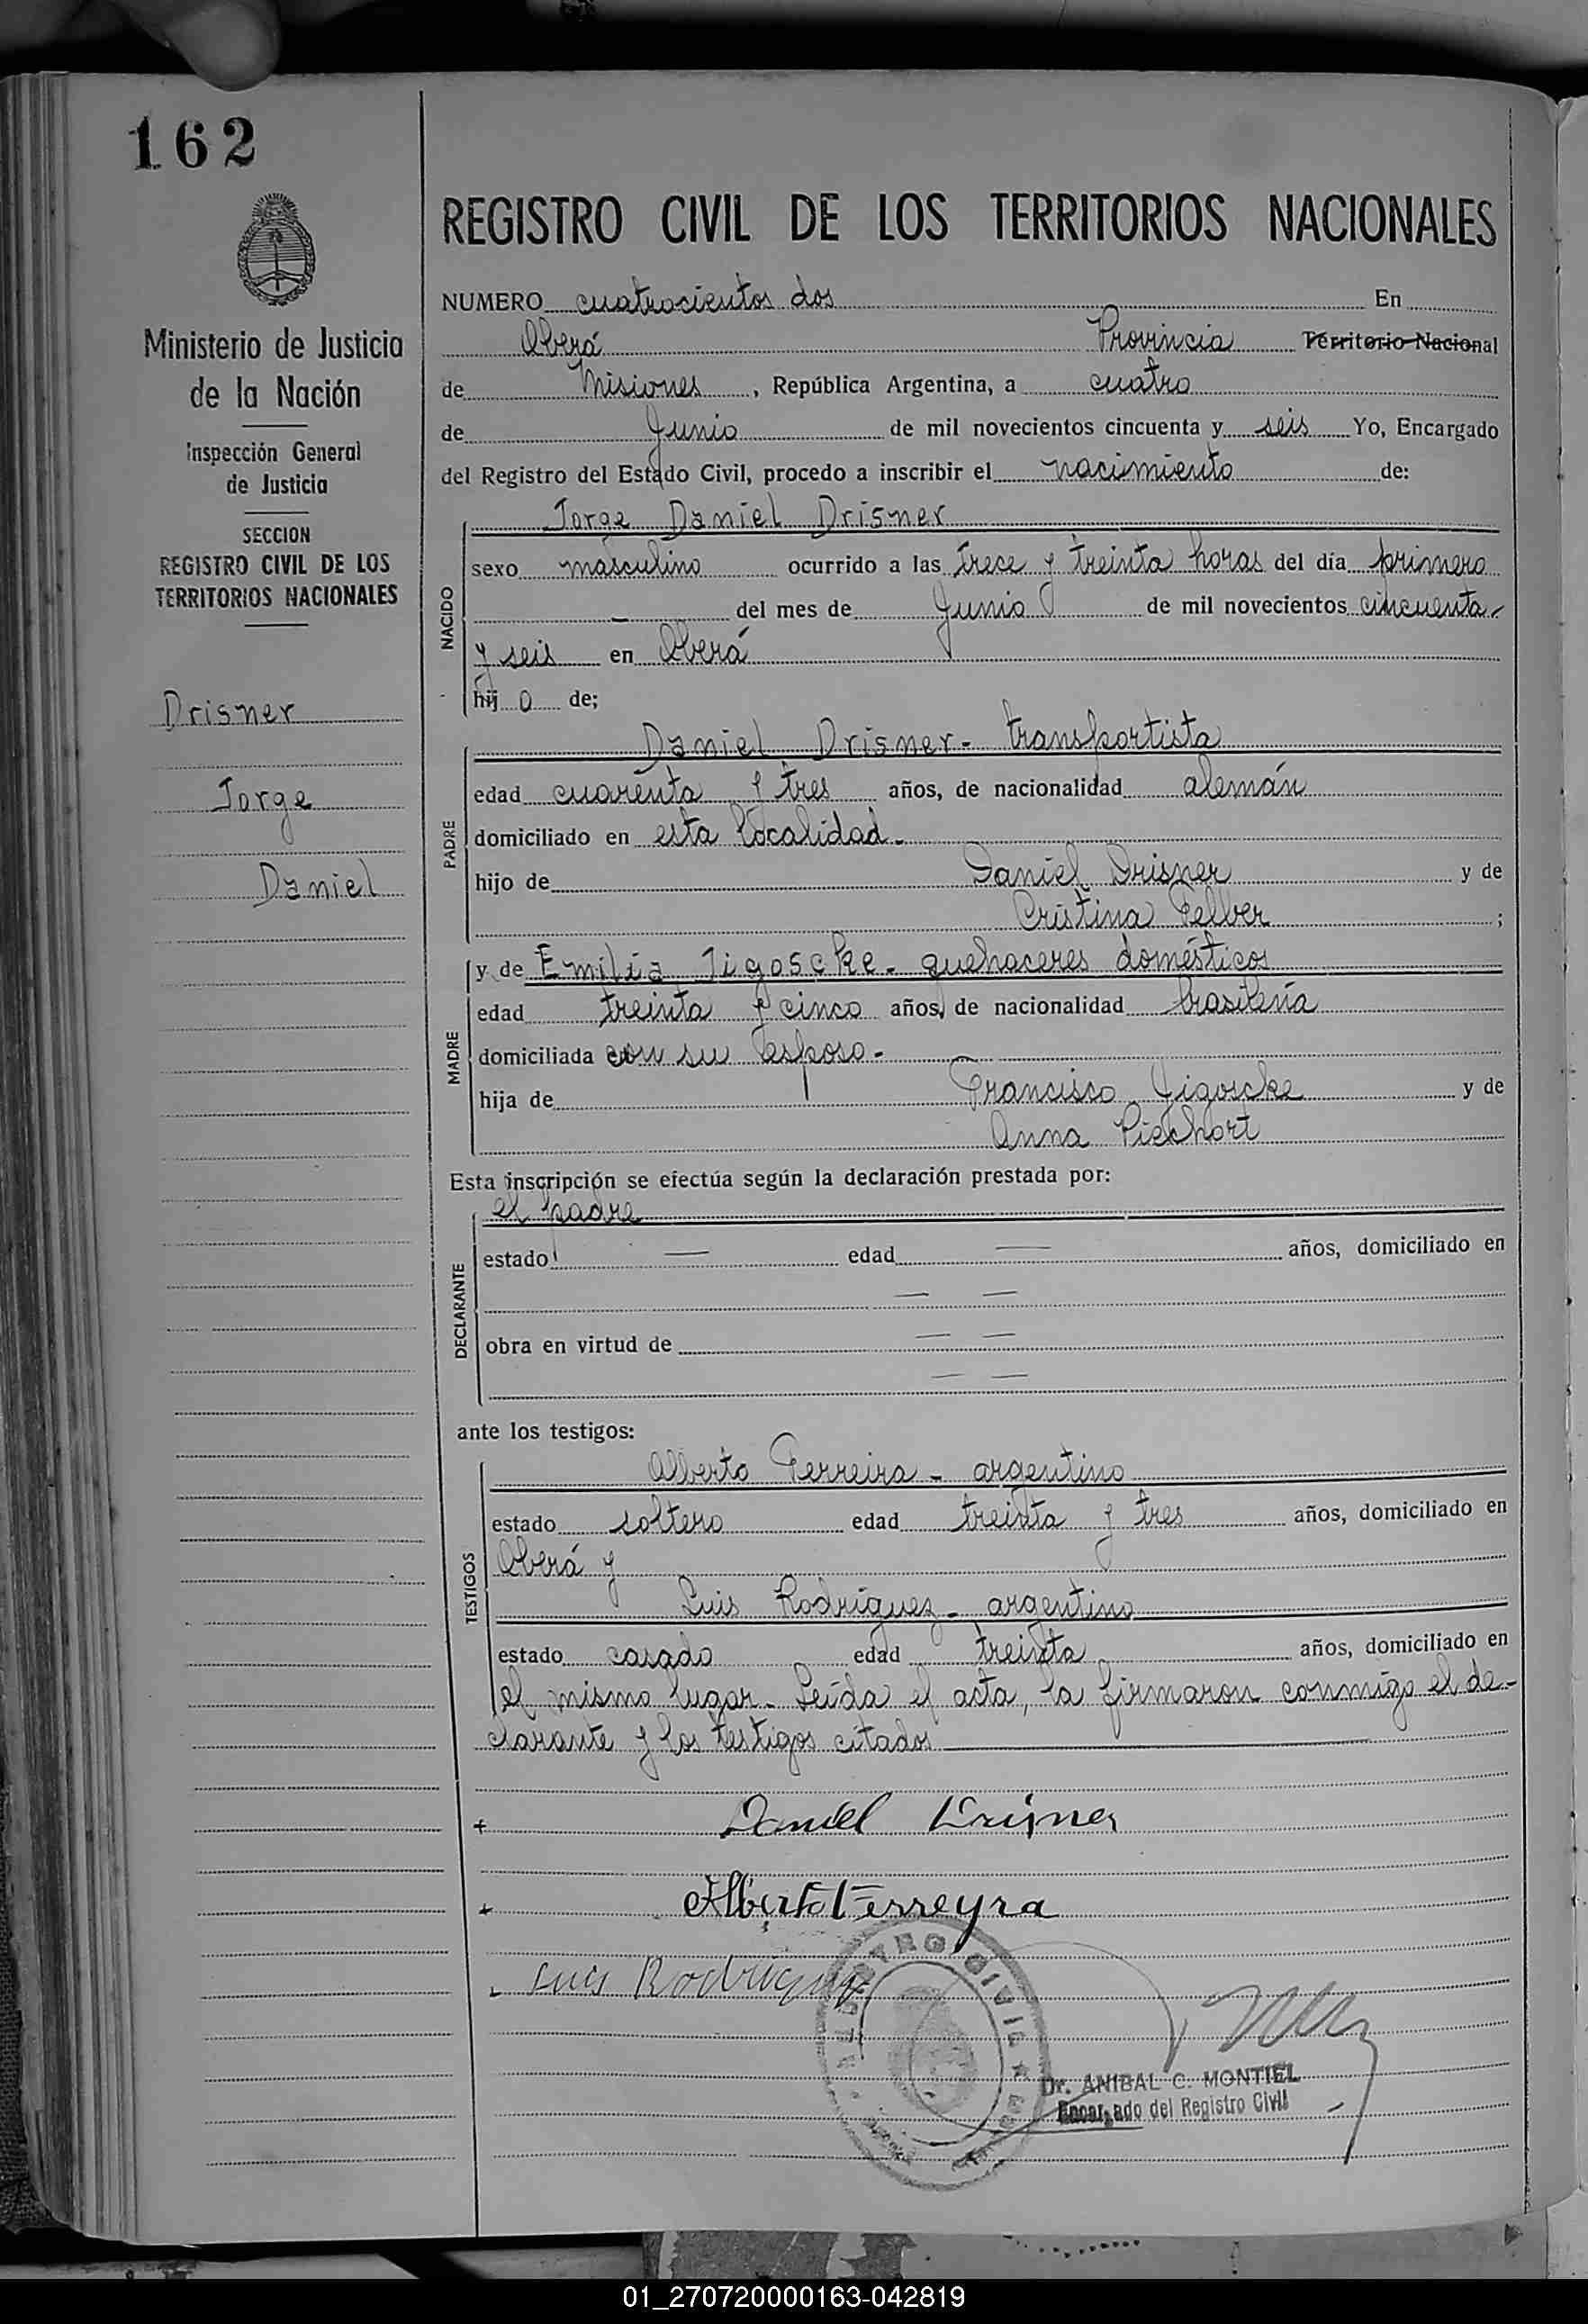 162
Ministerio de Justicia
de la Nación
Inspección General
de Justicia
SECCION
REGISTRO CIVIL DE LOS
TERRITORIOS NACIONALES
Drisner
Jorge
Daniel
REGISTRO CIVIL DE LOS TERRITORIOS NACIONALES
NUMERO cuatrocientos dos En
Oberá Provincia Territorio Nacional
de Misiones, República Argentina, a cuatro
de Junio de mil novecientos cincuenta y seis Yo, Encargado
del Registro del Estado Civil, procedo a inscribir el nacimiento de:
NACIDO
Jorge Daniel Drisner
sexo masculino ocurrido a las trece y treinta horas del día primero
— del mes de Junio de mil novecientos cincuenta-
y seis en Oberá
hijo de;
PADRE
Daniel Drisner- transportista
edad cuarenta y tres años, de nacionalidad alemán
domiciliado en esta localidad.-
hijo de Daniel Drisner y de
Cristina Felber ;
MADRE
y de Emilia Jigoscke- quehaceres domésticos
edad treinta y cinco años, de nacionalidad brasileña
domiciliada con su esposo-
hija de Francisco Jigoscke y de
Anna
Esta inscripción se efectúa según la declaración prestada por:
DECLARANTE
el padre
estado — edad — años, domiciliado en
— —
obra en virtud de — —
— —
ante los testigos:
TESTIGOS
Alberto Ferreira - argentino
estado soltero edad treinta y tres años, domiciliado en
Oberá y
Luis Rodríguez- argentino
estado casado edad treinta años, domiciliado en
el mismo lugar- Leída el acta, la firmaron conmigo el de-
clarante y los testigos citados
Daniel Drisner
Alberto Ferreyra
Luis Rodriguez
REGISTRO CIVIL
Dr. ANIBAL C. MONTIEL
Encargado del Registro Civil
01_270720000163-042819